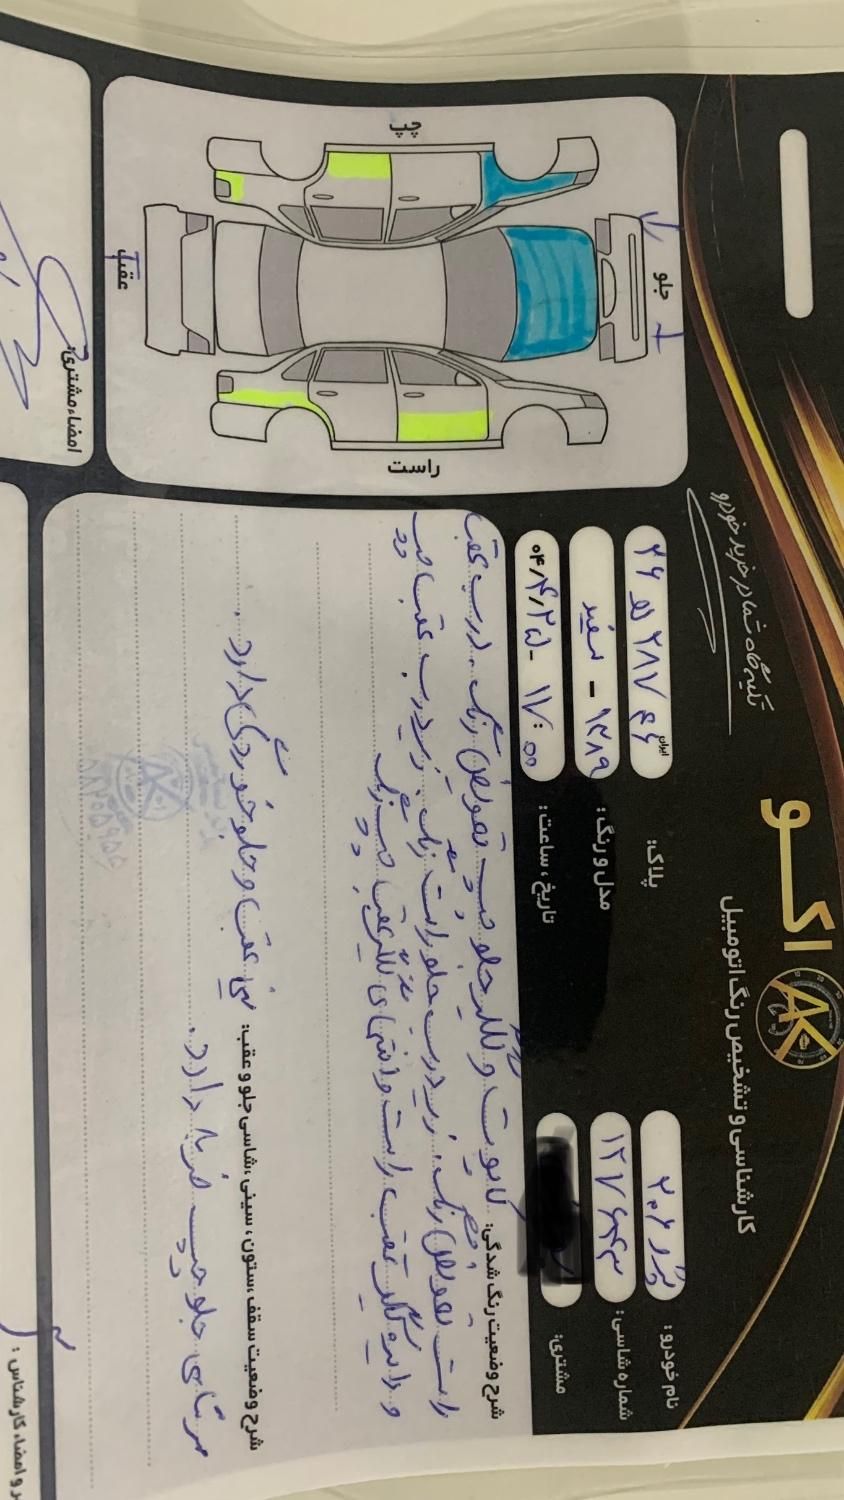 اکو
AK
کارشناسی و تشخیص رنگ اتومبیل
تکیه گاه شما در خرید خودرو
نام خودرو: پژو ۲۰۶
پلاک: ایران ۴۶ ۲۸۷ ۲۶
شماره شاسی: ۱۲۷۶۴۳
مدل و رنگ: ۱۳۸۹ - سفید
مشتری:
تاریخ، ساعت: ۰۴/۴/۲۵ - ۱۷:۰۰
جلو
چپ
راست
عقب
شرح وضعیت رنگ شدگی: کاپوت و گلگیر جلو چپ تعویض رنگ. درب عقب
راست تعویض رنگ. زیر درب جلو راست رنگ. زیر درب عقب چپ
و دایره گلگیر عقب راست و انتهای گلگیر عقب چپ رنگ
شرح وضعیت سقف، ستون، سینی، شاسی جلو و عقب: سینی عقب و جلو خوردگی دارد.
سرشاسی جلو چپ ضربه دارد.
امضاء مشتری:
و امضاء کارشناس: